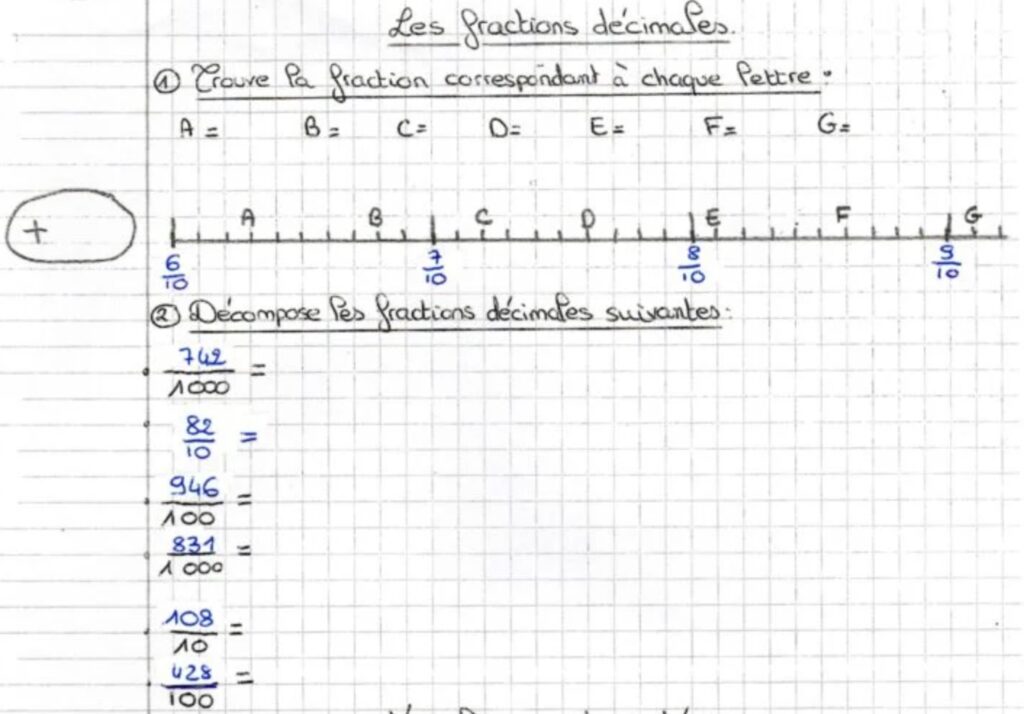 Les fractions décimales.
① Trouve la fraction correspondant à chaque lettre :
A = B = C= D= E= F= G=
+
A B C D E F G
6/10 7/10 8/10 9/10
② Décompose les fractions décimales suivantes :
742/1000 =
82/10 =
946/100 =
831/1000 =
108/10 =
428/100 =